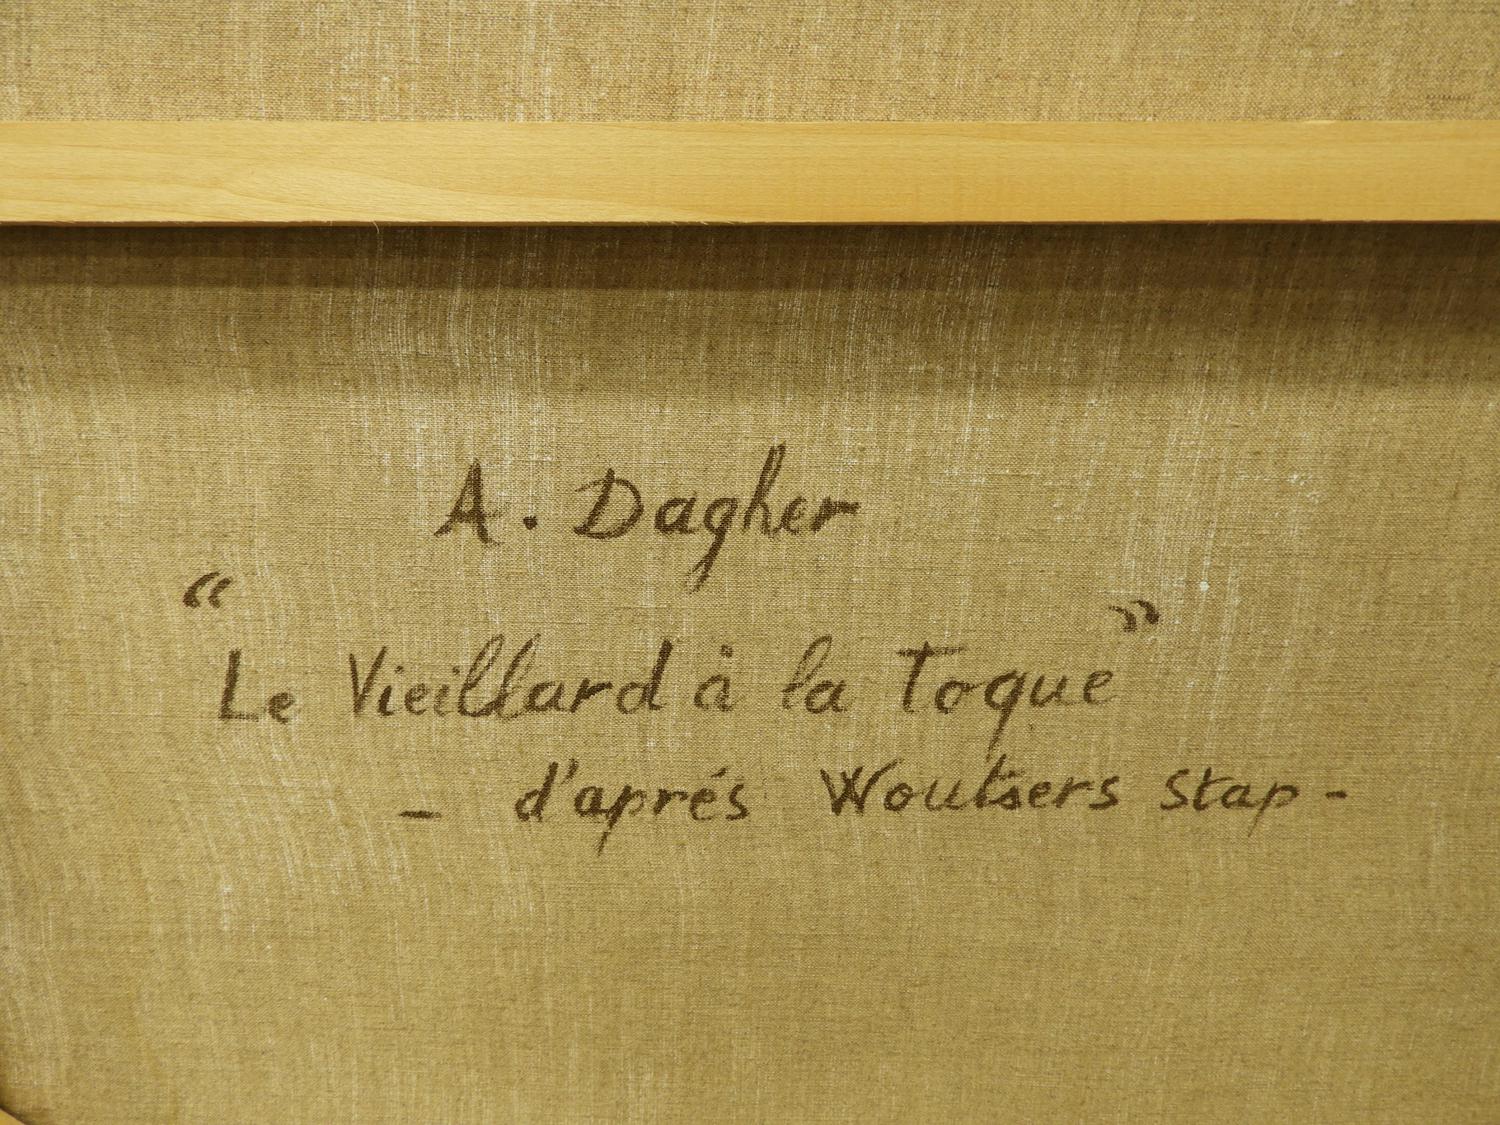 A. Dagher
“Le Vieillard à la Toque”
- d'aprés Woutsers Stap -